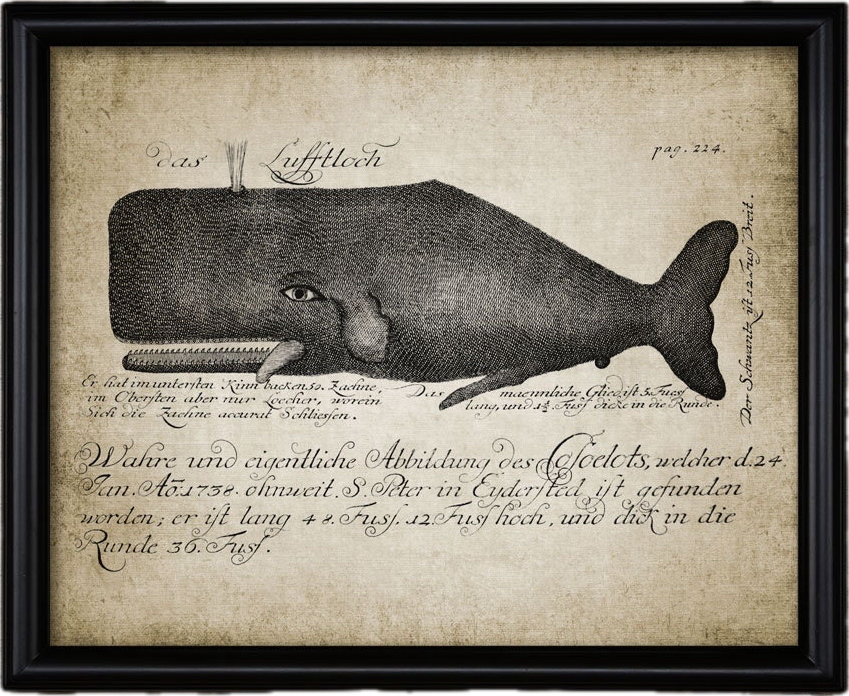 das Lufftloch
pag. 224.
Der Schwantz ist 12. Fuss Breit.
Er hat im untersten Kinnbacken 50. Zaehne
im Obersten aber nur Loecher, worein
Sich die Zaehne accurat Schliessen.
Das maennliche Glied ist 5. Fuess
lang, und 1½ Fuss dicke in die Runde.
Wahre und eigentliche Abbildung des Casoelots, welcher d. 24.
Jan. Ao. 1738. ohnweit. S. Peter in Eydersted, ist gefunden
worden; er ist lang 48. Fuss. 12. Fuss hoch, und dick in die
Runde 36. Fuss.